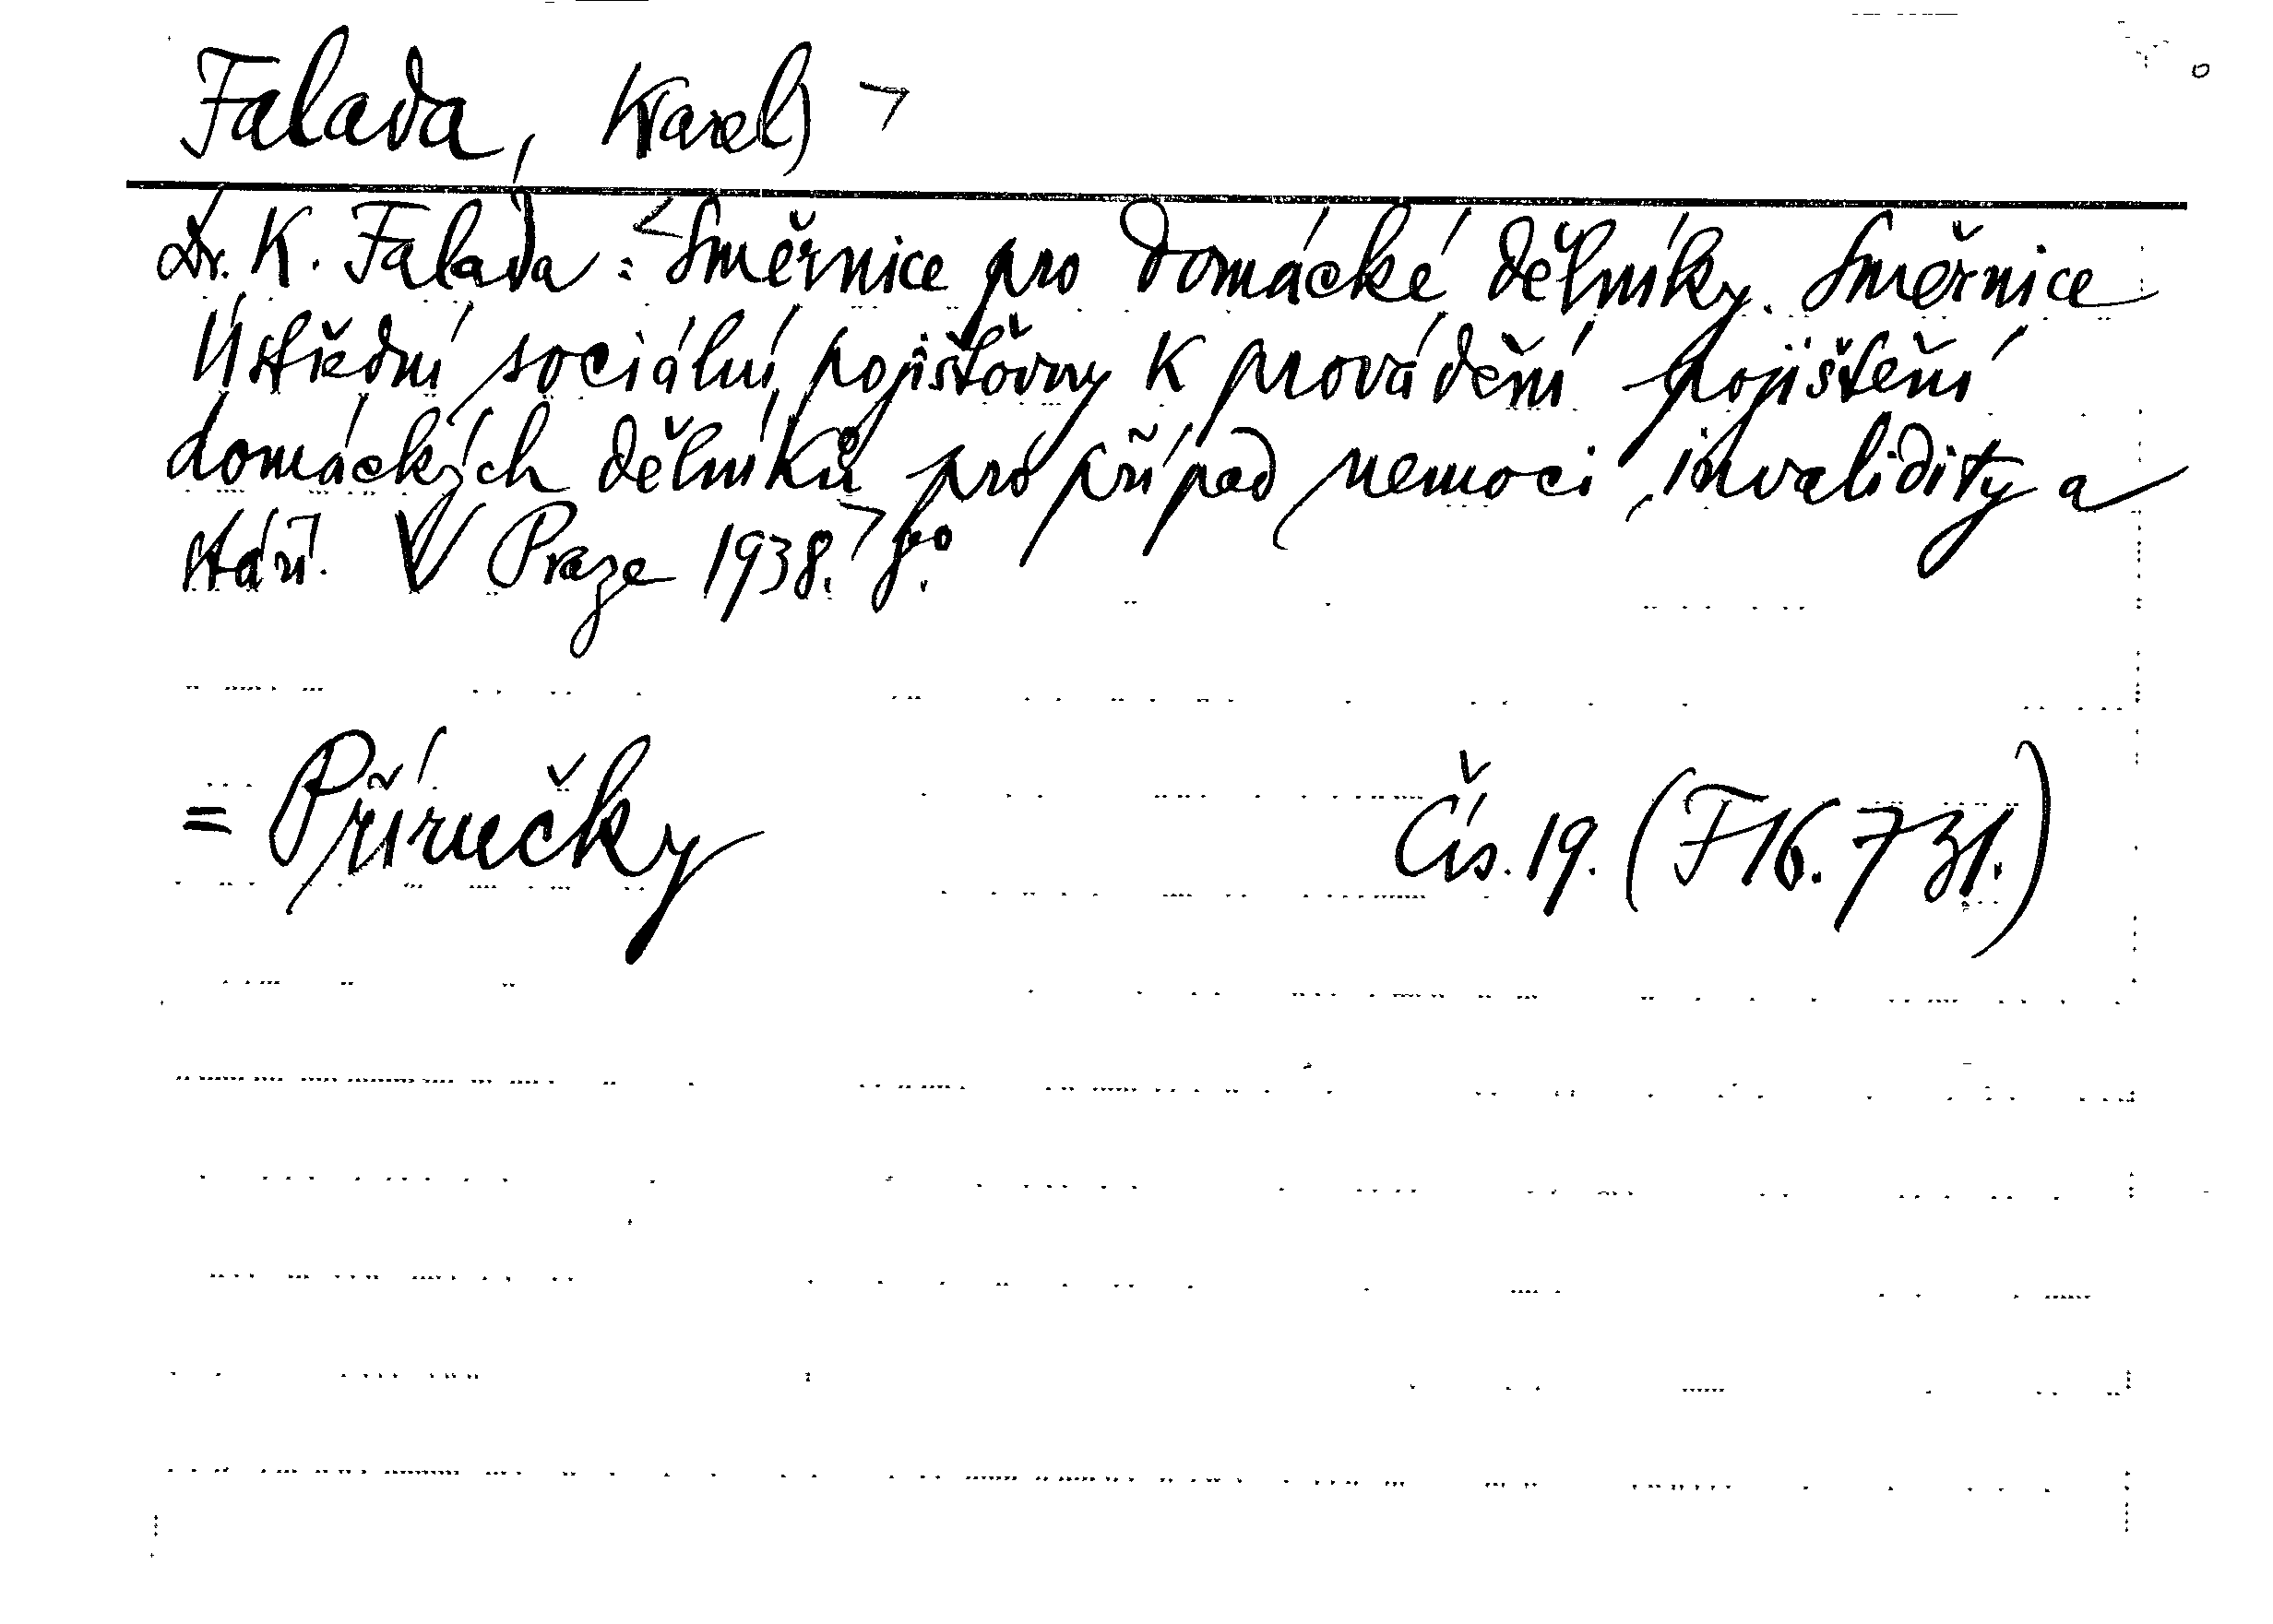 Falada, Karel) >
Dr. K. Falada: <Směrnice pro domácké dělníky. Směrnice
Ústřední sociální pojišťovny k provádění pojištění
domáckých dělníků pro případ nemoci, invalidity a
stáří. V Praze 1938.> 8°.
= Příručky Čís. 19. (F 16.731.)